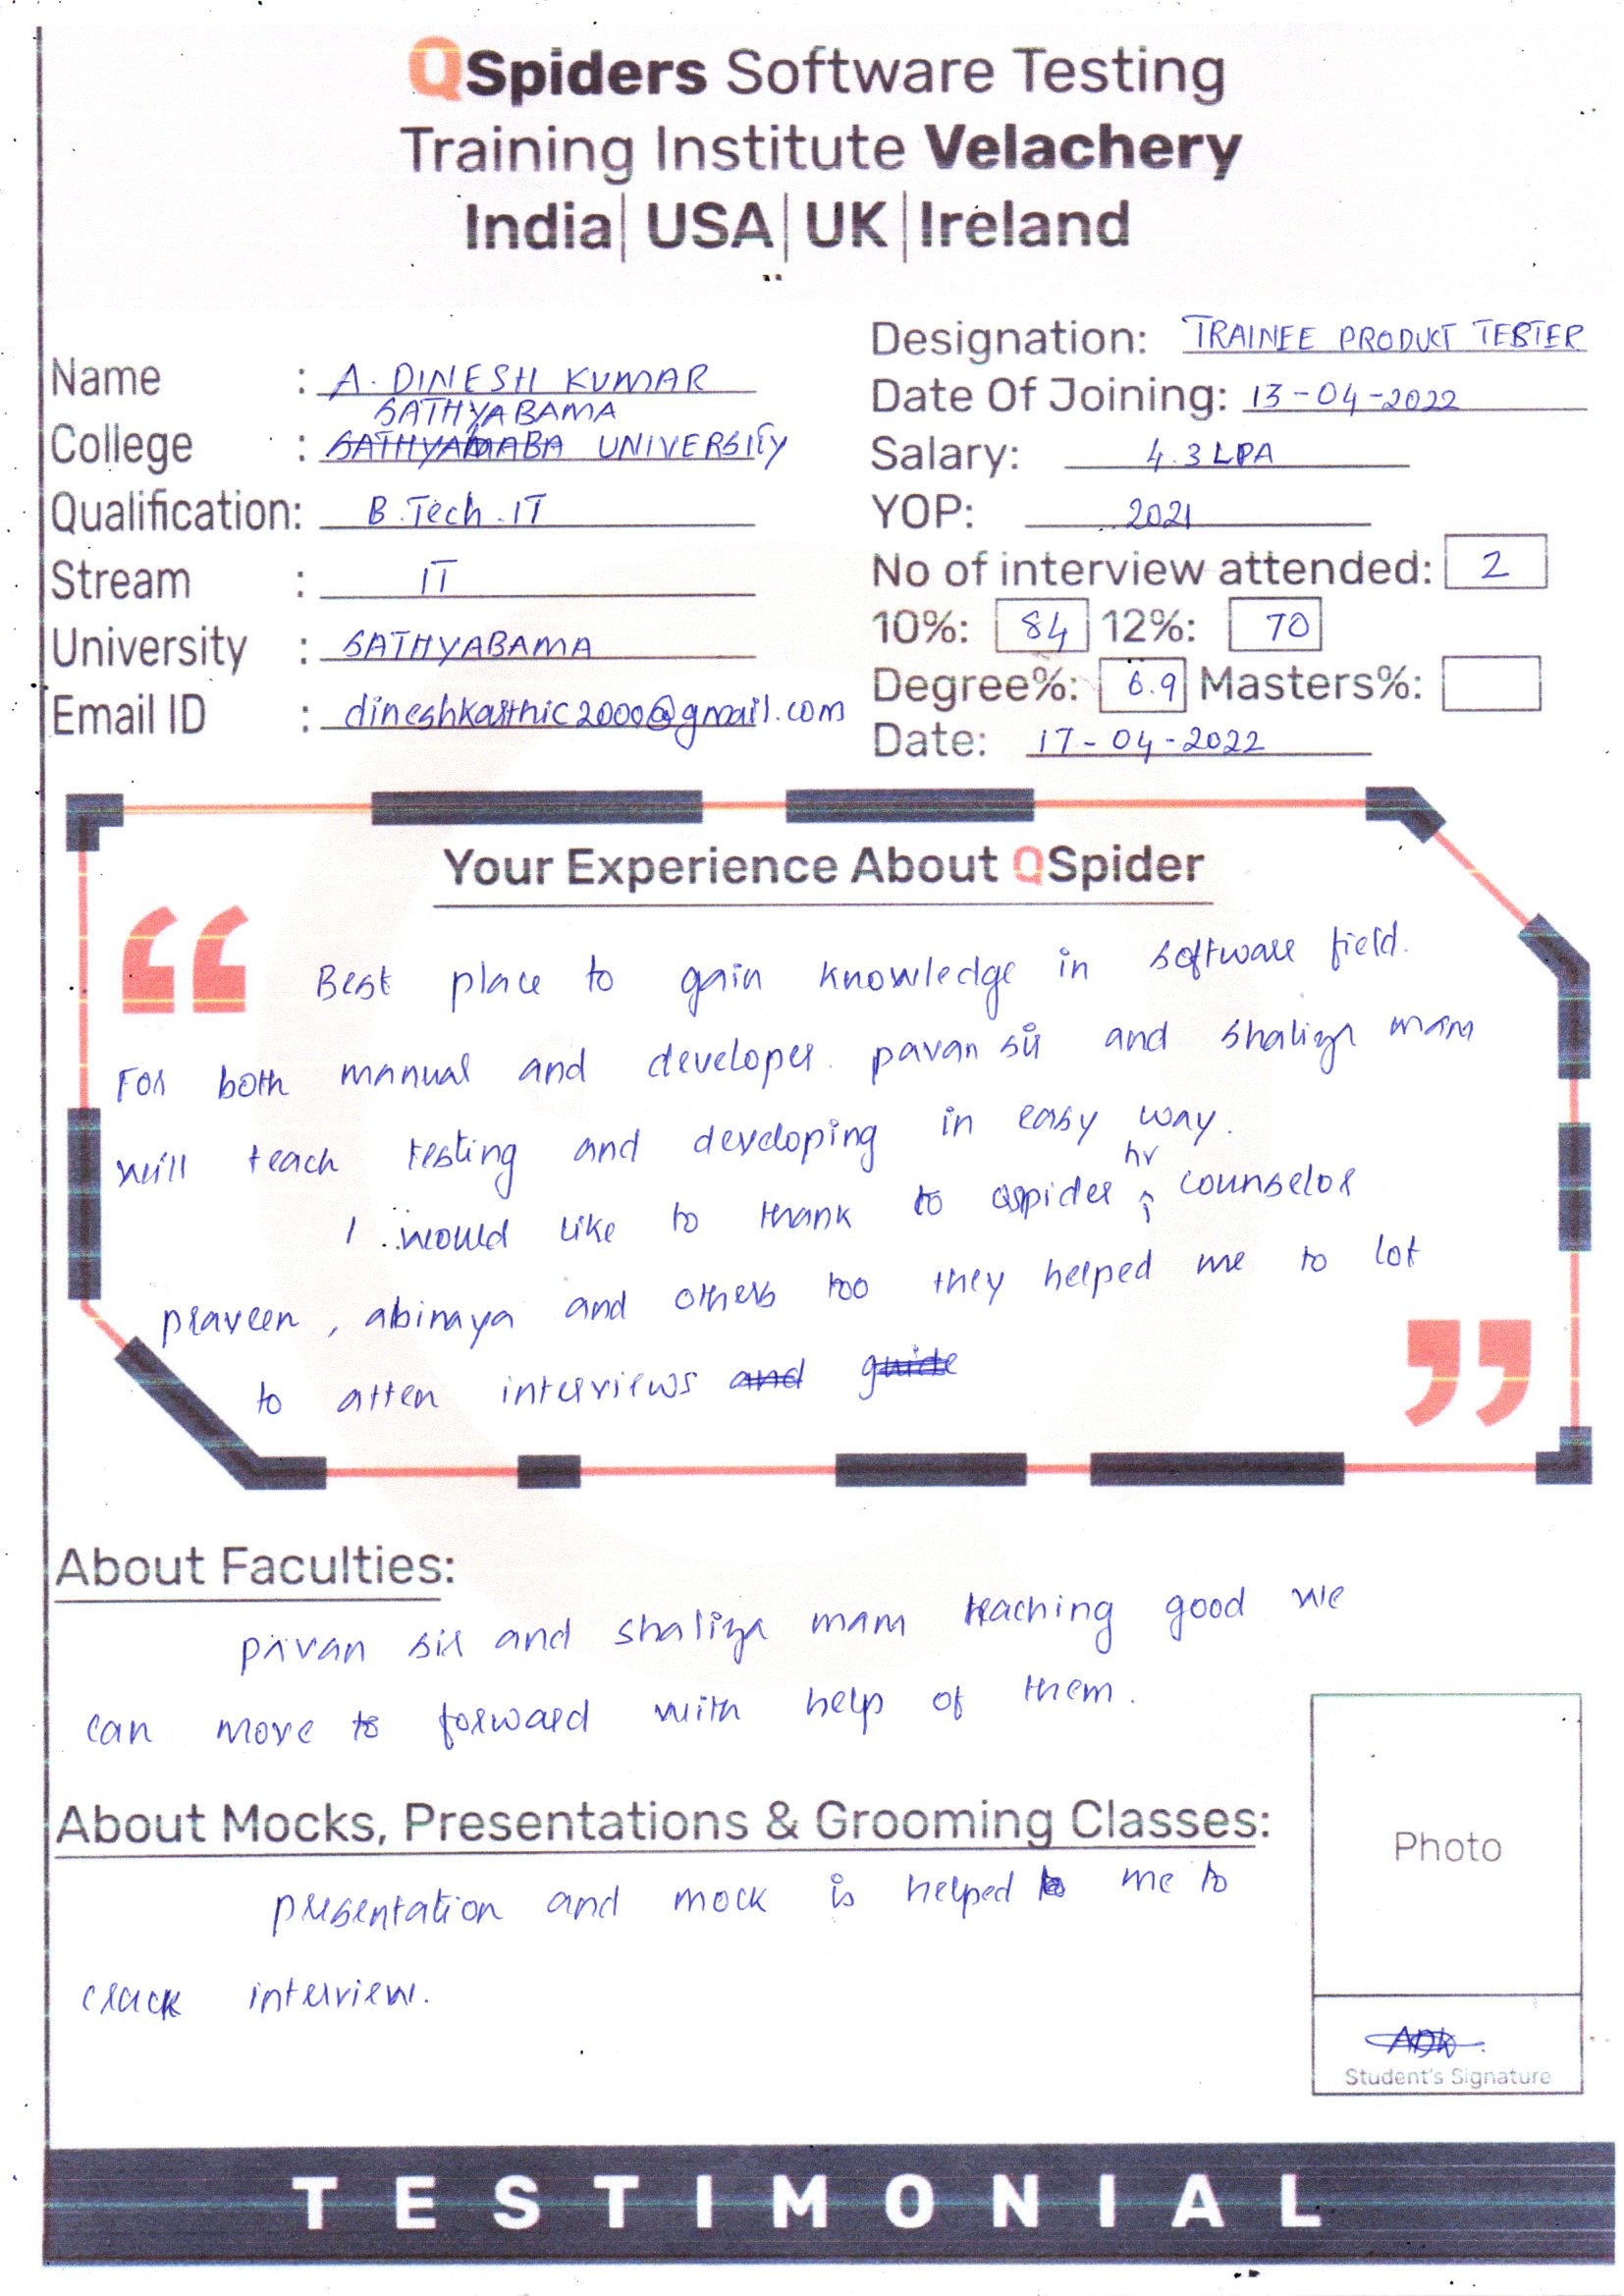 QSpiders Software Testing
Training Institute Velachery
India| USA| UK |Ireland
Name : A. DINESH KUMAR
SATHYABAMA
College : SATHYAMABA UNIVERSITY
Qualification: B.Tech.IT
Stream : IT
University : SATHYABAMA
Email ID : dineshkarthic2000@gmail.com
Designation: TRAINEE PRODUCT TESTER
Date Of Joining: 13-04-2022
Salary: 4.3 LPA
YOP: 2021
No of interview attended: 2
10%: 84 12%: 70
Degree%: 6.9 Masters%:
Date: 17-04-2022
Your Experience About QSpider
Best place to gain knowledge in software field.
For both manual and developer. pavan sir and shaliza mam
will teach testing and developing in easy way.
I would like to thank to qspider hr counselor
praveen , abinaya and others too they helped me to lot
to atten interviews and guide
About Faculties:
pavan sir and shaliza mam teaching good we
can move to forward with help of them.
About Mocks, Presentations & Grooming Classes:
presentation and mock is helped to me to
crack interview.
Photo
ADK
Student's Signature
TESTIMONIAL